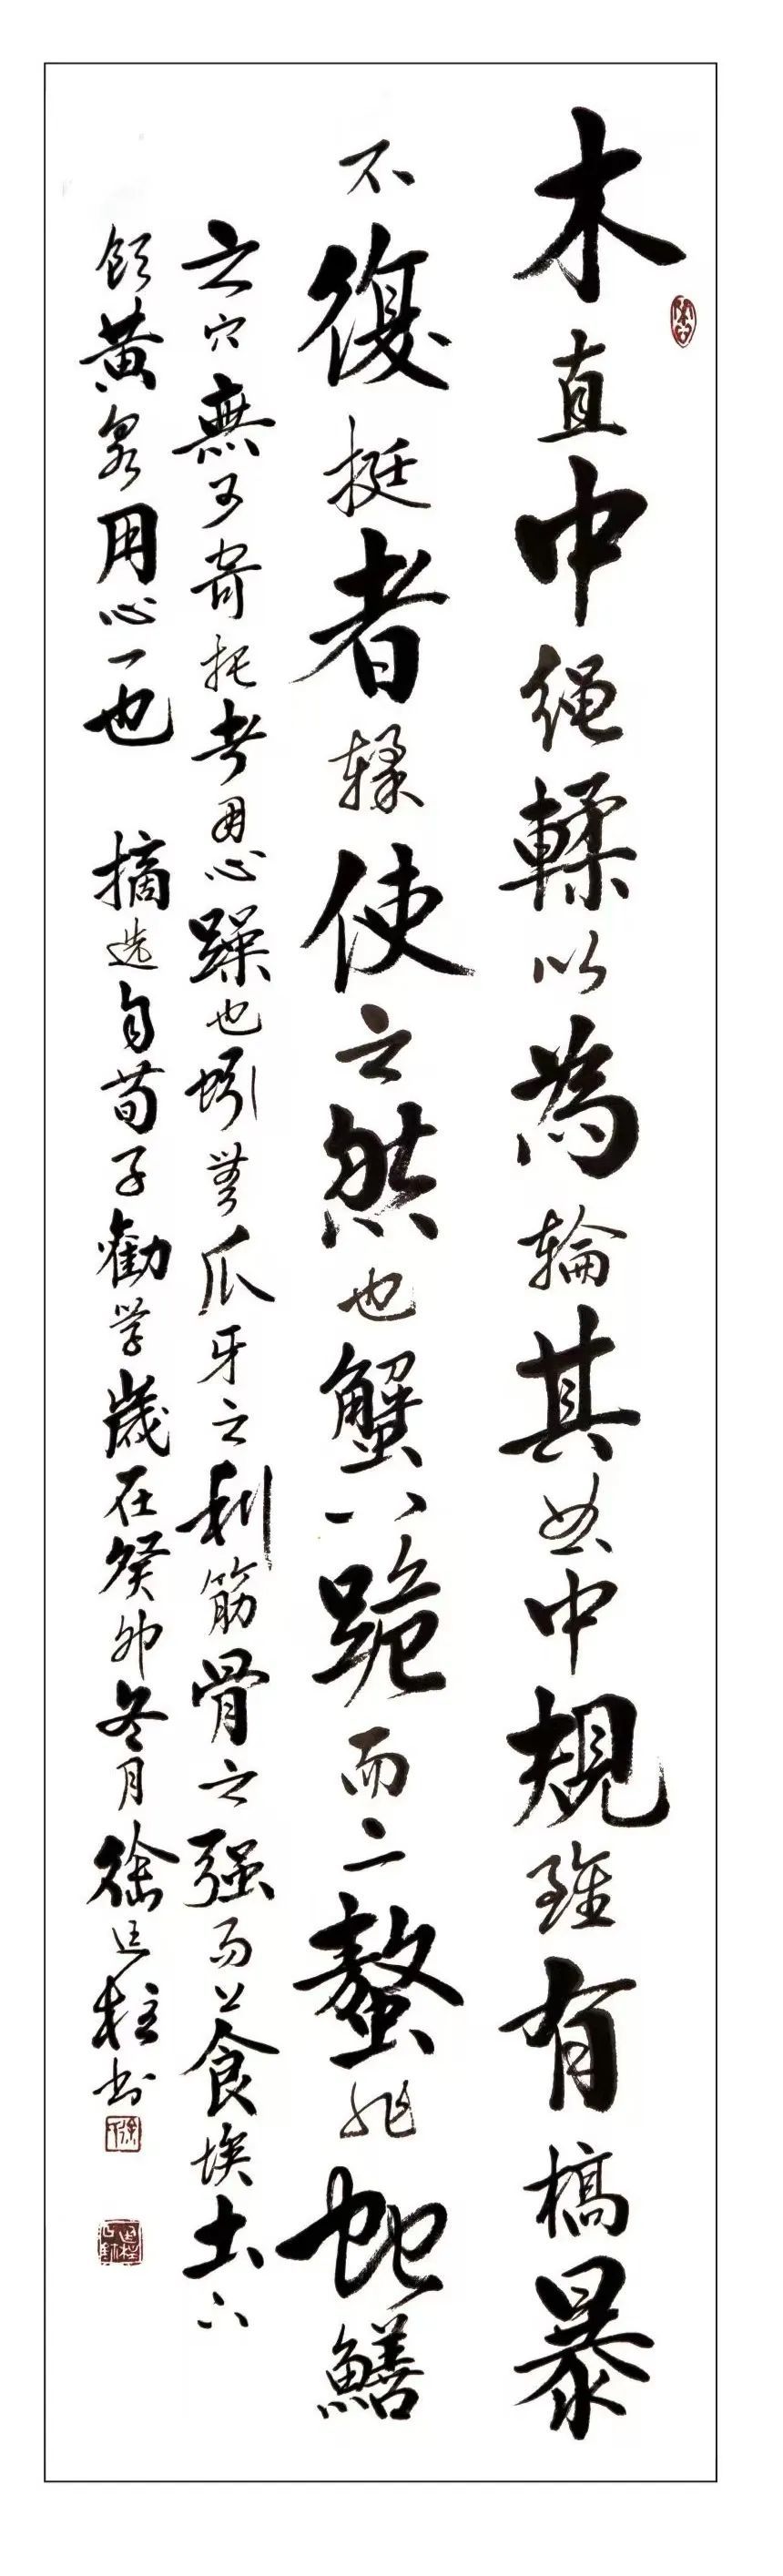 木直中绳輮以為輪其曲中規雖有槁暴
不復挺者輮使之然也蟹八跪而二螯非蛇鱔
之穴無可寄托者用心躁也蚓無爪牙之利筋骨之强而上食埃土下
飲黄泉用心一也 摘选自荀子勸学歲在癸卯冬月徐柱书